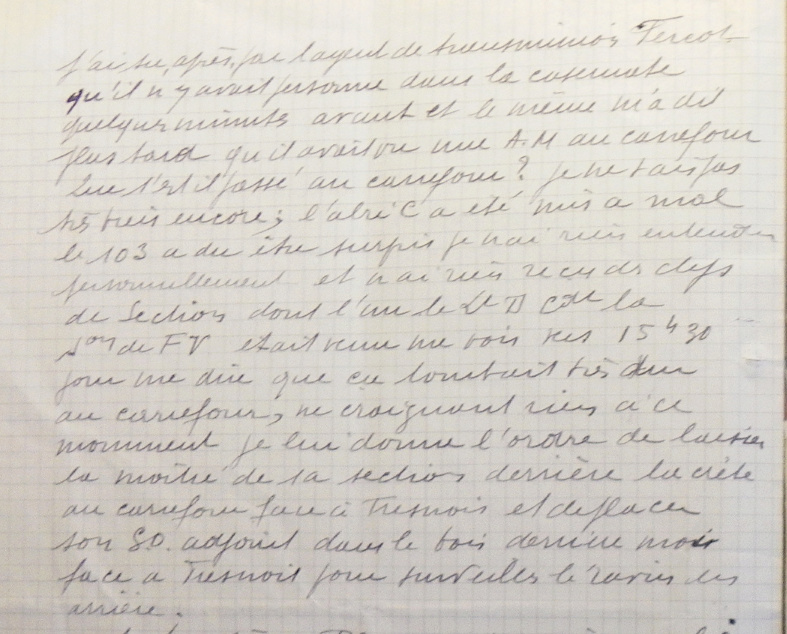 j'ai su, après, par l'agent de transmission Fercot
qu'il n'y avait personne dans la casemate
quelques minutes avant et le même m'a dit
plus tard qu'il avait vu une A.M au carrefour
Que s'est il passé au carrefour? je ne sais pas
très bien encore; l'abri C a été mis a mal
le 103 a du être surpris je n'ai rien entendu
personnellement et n'ai rien reçu des chefs
de Section dont l'un le Lt B Cdt la
Son de FV était venu me voir vers 15h30
pour me dire que ça tombait très dur
au carrefour, ne craignant rien à ce
momment je lui donne l'ordre de laisser
la moitié de sa section derrière la crête
au carrefour face à Tresnois et de placer
son S.O. adjoint dans le bois derrière moi
face a Tresnois pour surveiller le ravin en
arrière.